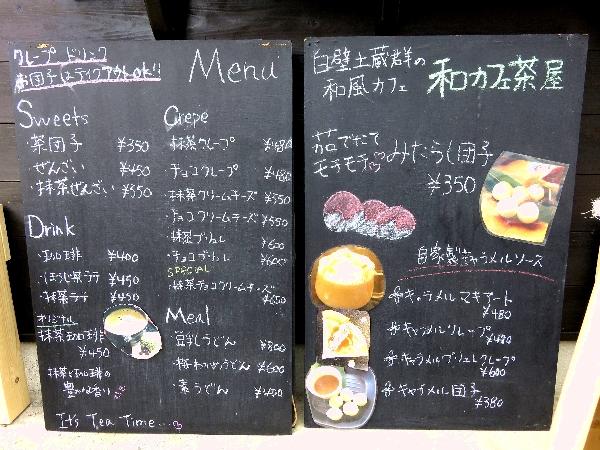 クレープ・ドリンク
お団子はテイクアウトok!!
Menu
Sweets
・茶団子 ¥350
・ぜんざい ¥450
・抹茶ぜんざい ¥550
Drink
・珈琲 ¥400
・ほうじ茶ラテ ¥450
・抹茶ラテ ¥450
オリジナル
抹茶珈琲
¥450
抹茶と珈琲の
豊かな香り
It's Tea Time...
Crepe
・抹茶クレープ ¥480
・チョコクレープ ¥480
・抹茶クリームチーズ ¥550
・チョコクリームチーズ ¥550
・抹茶ブリュレ ¥600
・チョコブリュレ ¥600
SPECIAL
・抹茶チョコクリームチーズ
¥650
Meal
・豆乳うどん ¥800
・梅わかめうどん ¥600
・素うどん ¥450
白壁土蔵群の
和風カフェ
和カフェ茶屋
茹でたて
モチモチ みたらし団子
¥350
自家製キャラメルソース
キャラメル マキアート
¥480
キャラメルクレープ
¥480
キャラメルブリュレクレープ
¥600
キャラメル団子
¥380